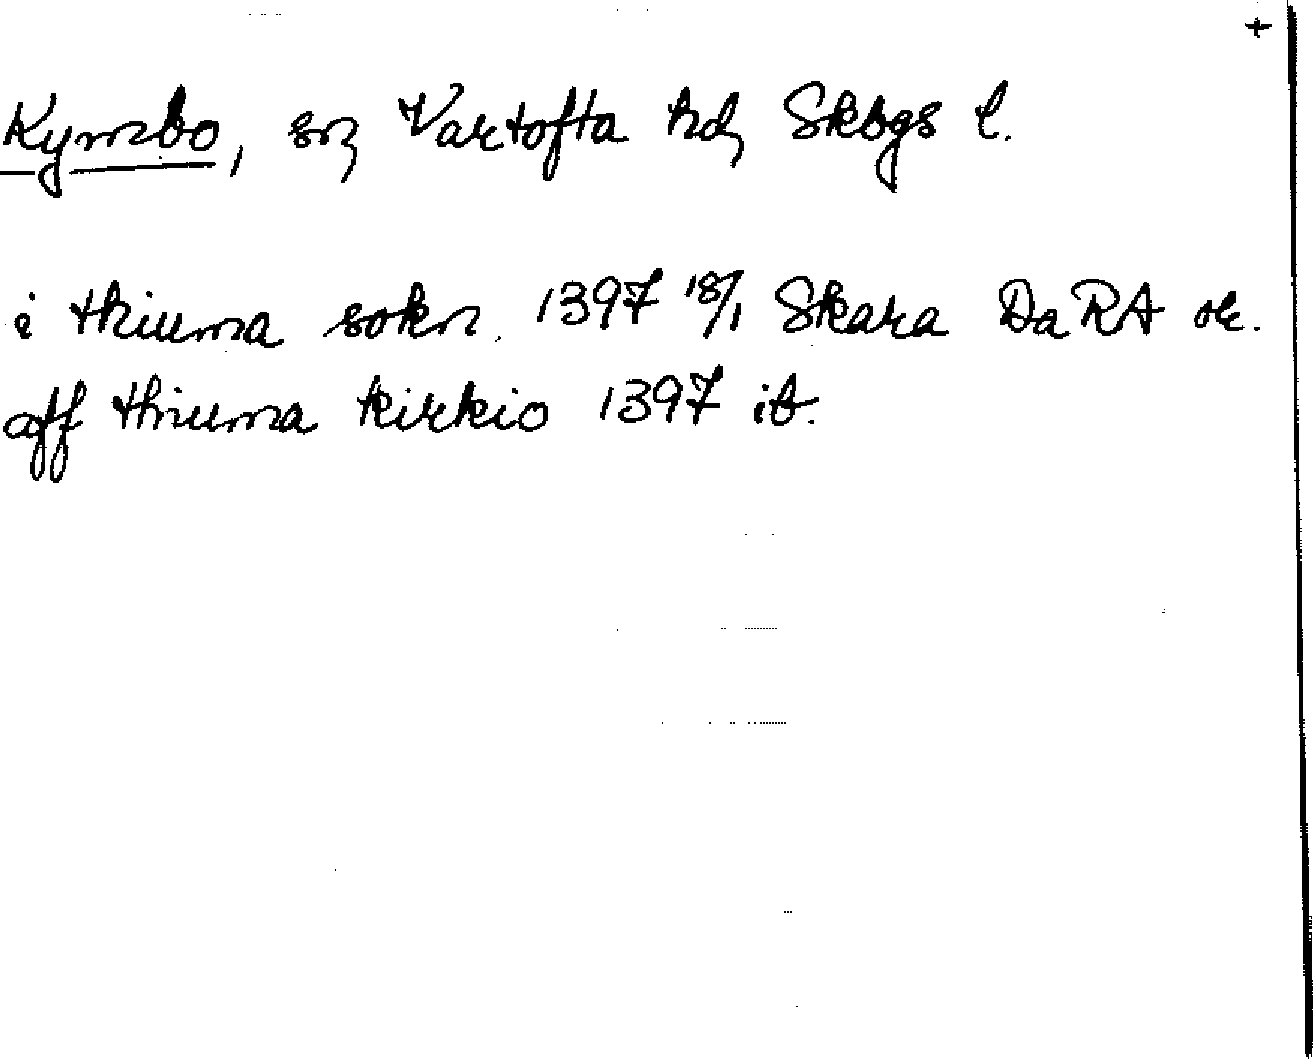 +
Kymbo, sn, Vartofta hd, Skbgs l.
i thiuma sokn. 1397 18/1 Skara DaRA or.
aff thiuma kirkio 1397 ib.